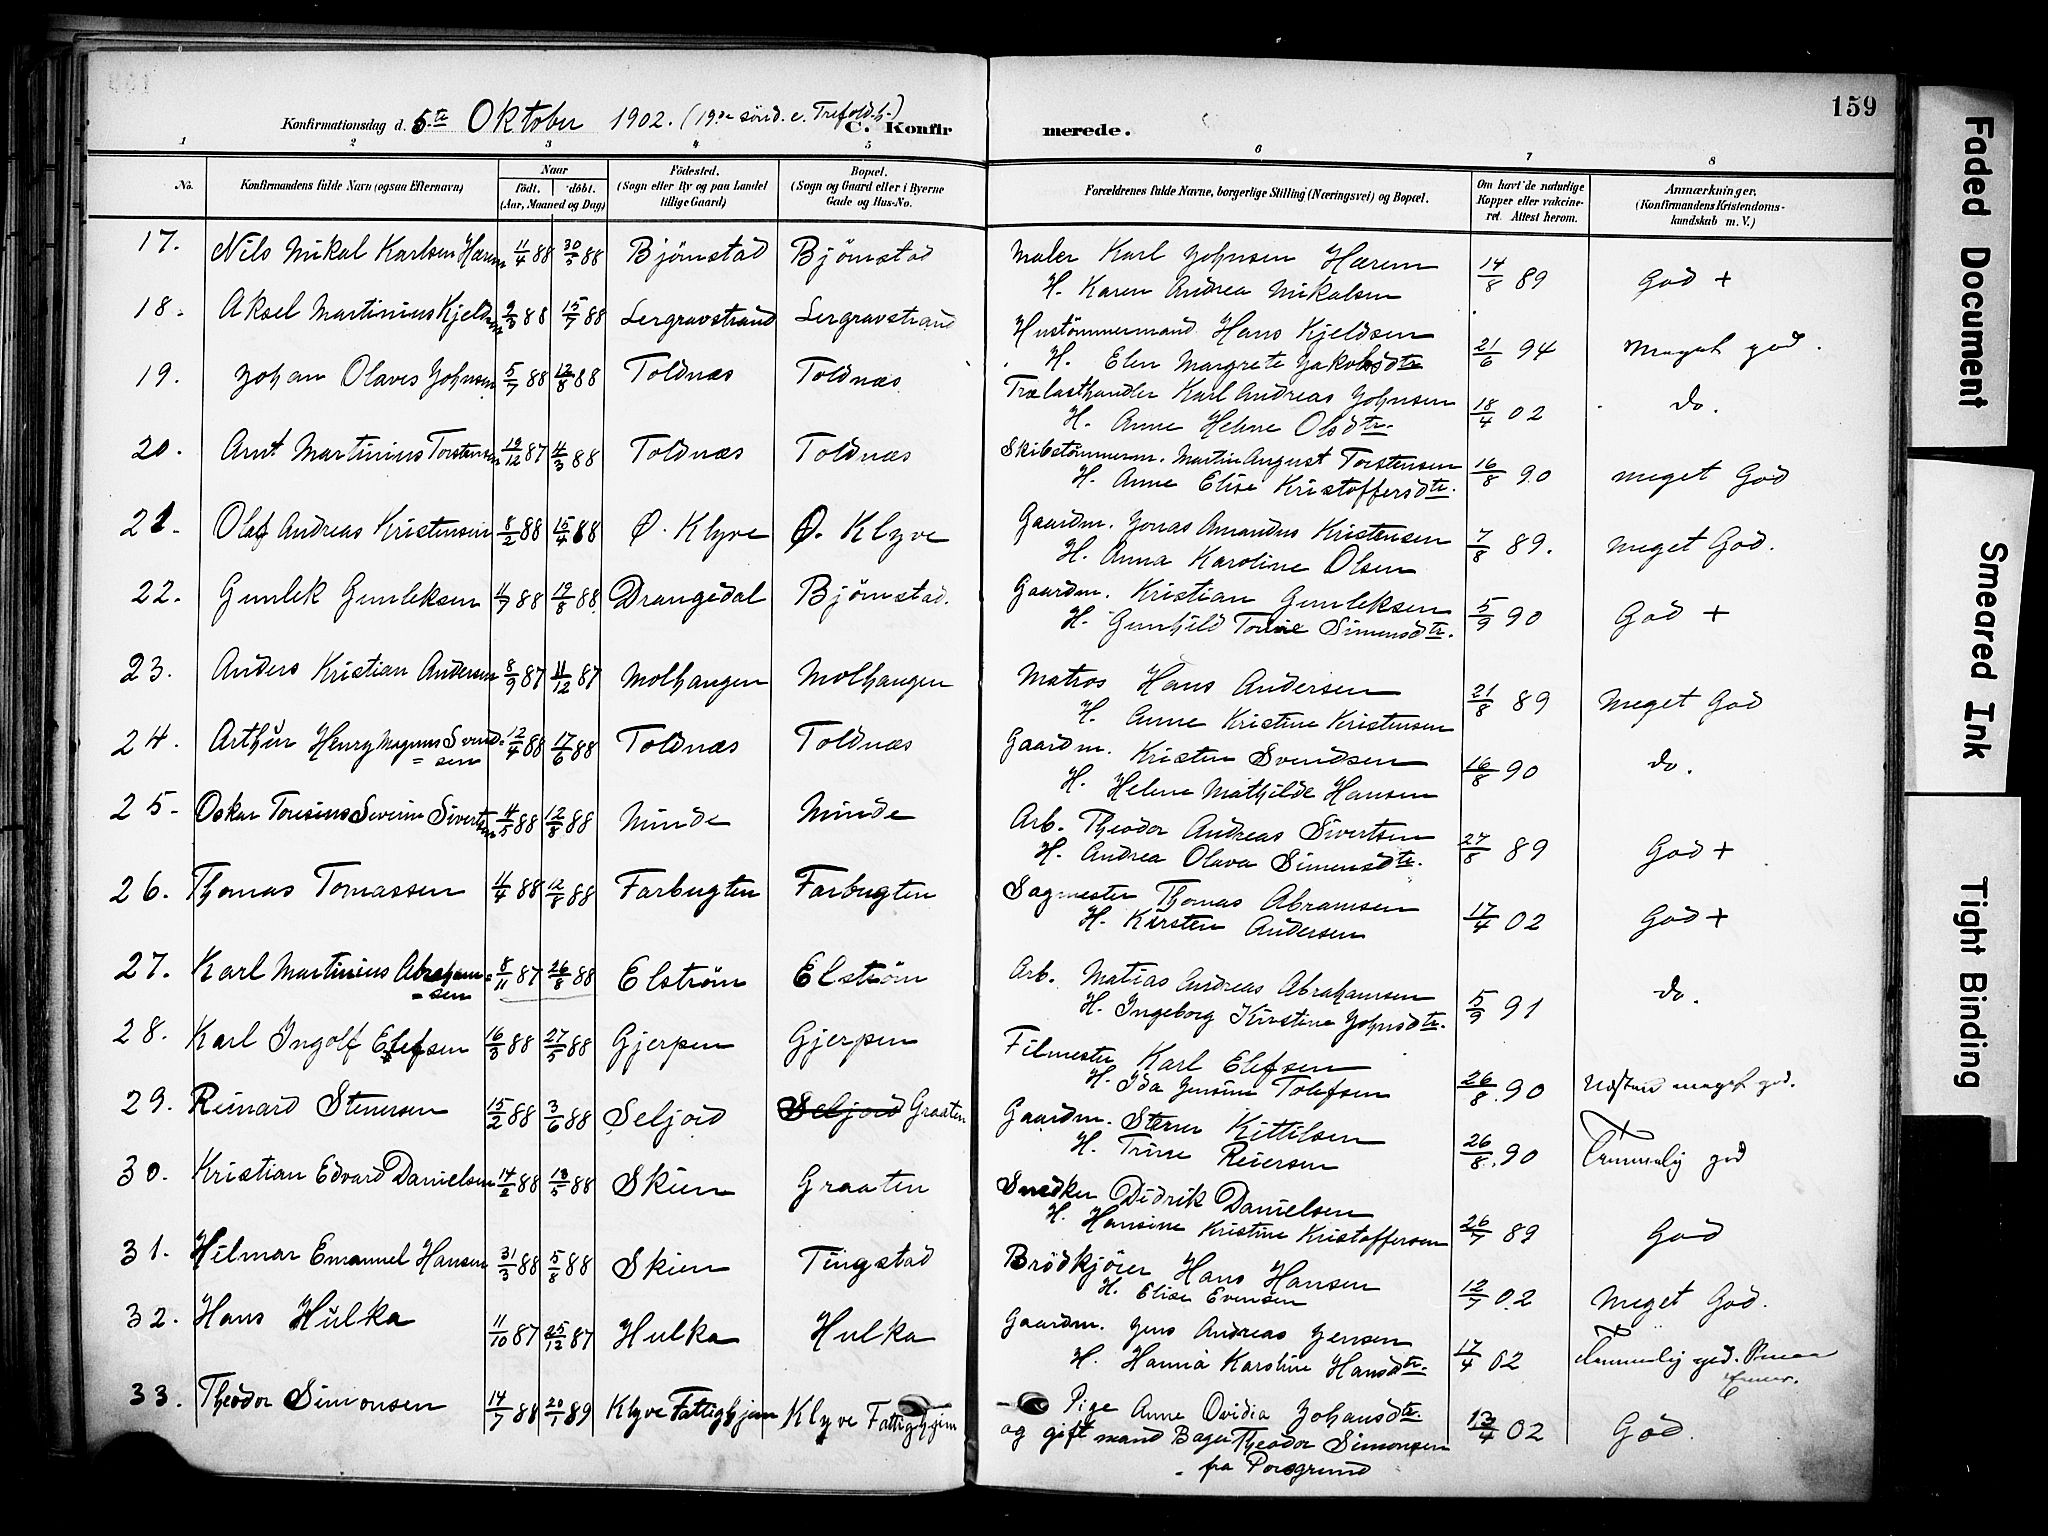 159
Konfirmationsdag d. 5te Oktober 1902. (19de sönd. e. Trefold.h.)
C. Konfirmerede.
1 2 3 4 5 6 7 8
No.
Konfirmandens fulde Navn (ogsaa Efternavn)
Naar
födt. döbt.
(Aar, Maaned og Dag)
Födested.
(Sogn eller By og paa Landet
tillige Gaard)
Bopæl.
(Sogn og Gaard eller i Byerne
Gade og Hus-No.
Forældrenes fulde Navne, borgerlige Stilling (Næringsvei) og Bopæl.
Om havt de naturlige
Kopper eller vakcine-
ret. Attest herom.
Anmærkninger.
(Konfirmandens Kristendoms-
kundskab m. V.)
17. Nils Mikal Karlsen Hærem 11/4 88 30/5 88 Bjørnstad Bjørnstad Maler Karl Johnsen Hærem 14/8 89 God +
H. Karen Andrea Mikalsen
18. Aksel Martinius Kjeldsen 88 15/7 88 Lergravstrand Lergravstrand Hustømmermand Hans Kjeldsen 21/6 94 Meget god.
H. Elen Margrete Jakobsdtr
19. Johan Olaves Johnsen 5/7 88 12/8 88 Toldnæs Toldnæs Trælasthandler Karl Andreas Johnsen 18/4 02 do.
H. Anne Helene Olsdtr.
20. Arnt Martinius Torstensen 19/12 87 4/3 88 Toldnæs Toldnæs Skibstømmerm. Martin August Torstensen 16/8 90 meget God
H. Anne Elise Kristoffersdtr.
21. Olaf Andreas Kristensen 8/2 88 15/4 88 Ø. Klyve Ø. Klyve Gaardm. Jonas Amandus Kristensen 7/8 89. meget God.
H. Anna Karoline Olsen
22. Gunlek Gunleksen 4/7 88 19/8 88 Drangedal Bjørnstad. Gaardm. Kristian Gunleksen 5/9 90 God +
H. Gunhild Tomine Simensdtr.
23. Anders Kristian Andersen 8/9 87 11/12 87 Molhaugen Molhaugen Matros Hans Andersen 21/8 89 Meget God
H. Anne Kristine Kristensen
24. Arthur Henry Magnus Svend= 12/4 88 17/6 88 Toldnæs Toldnæs Gaardm. Kristen Svendsen 16/8 90 do.
=sen
H. Helene Mathilde Hansen
25. Oskar Toresius Severin Sivertsen 4/5 88 12/8 88 Minde Minde Arb. Theodor Andreas Sivertsen 27/8 89 God +
H. Andrea Olava Simensdtr.
26. Thomas Tomassen 4/4 88 12/8 88 Farbugten Farbugten Sagmester Thomas Abramsen 17/4 02 God +
H. Kirsten Andersen
27. Karl Martinius Abraham= 8/11 87 26/8 88 Elstrøm Elstrøm Arb. Matias Andreas Abrahamsen 5/9 91 do.
=sen
H. Ingeborg Kirstine Johnsdtr.
28. Karl Ingolf Elefsen 16/3 88 27/5 88 Gjerpen Gjerpen Filmester Karl Elefsen 26/8 90 Næsten meget god.
H. Ida Jensine Tolefsen
29. Reinard Stenersen 15/2 88 3/6 88 Seljord Seljord Graaten Gaardm. Stener Kittilsen 26/8. 90 Temmelig god
H. Trine Reiersen
30. Kristian Edvard Danielsen 14/2 88 13/5 88 Skien Graaten Snedker Didrik Danielsen 26/7 89 God
H. Hansine Kristine Kristoffersen
31. Hilmar Emanuel Hansen 31/3 88 5/8 88 Skien Tingstad Brödkjörer Hans Hansen 12/7 02 Meget God.
H. Elise Evensen
32. Hans Hulka 11/10 87 25/12 87 Hulka Hulka Gaardm. Jens Andreas Jensen 17/4 02 Temmelig god.
H. Hanna Karstine Hansdtr.
33. Theodor Simonsen 14/7 88 20/1 89 Klyve Fattighjem Klyve Fattighjem Pige Anne Ovidia Johansdtr. 13/4 02 God.
og gift mand Bager Theodor Simonsen
fra Porsgrund
Faded Document
Smeared Ink
Tight Binding